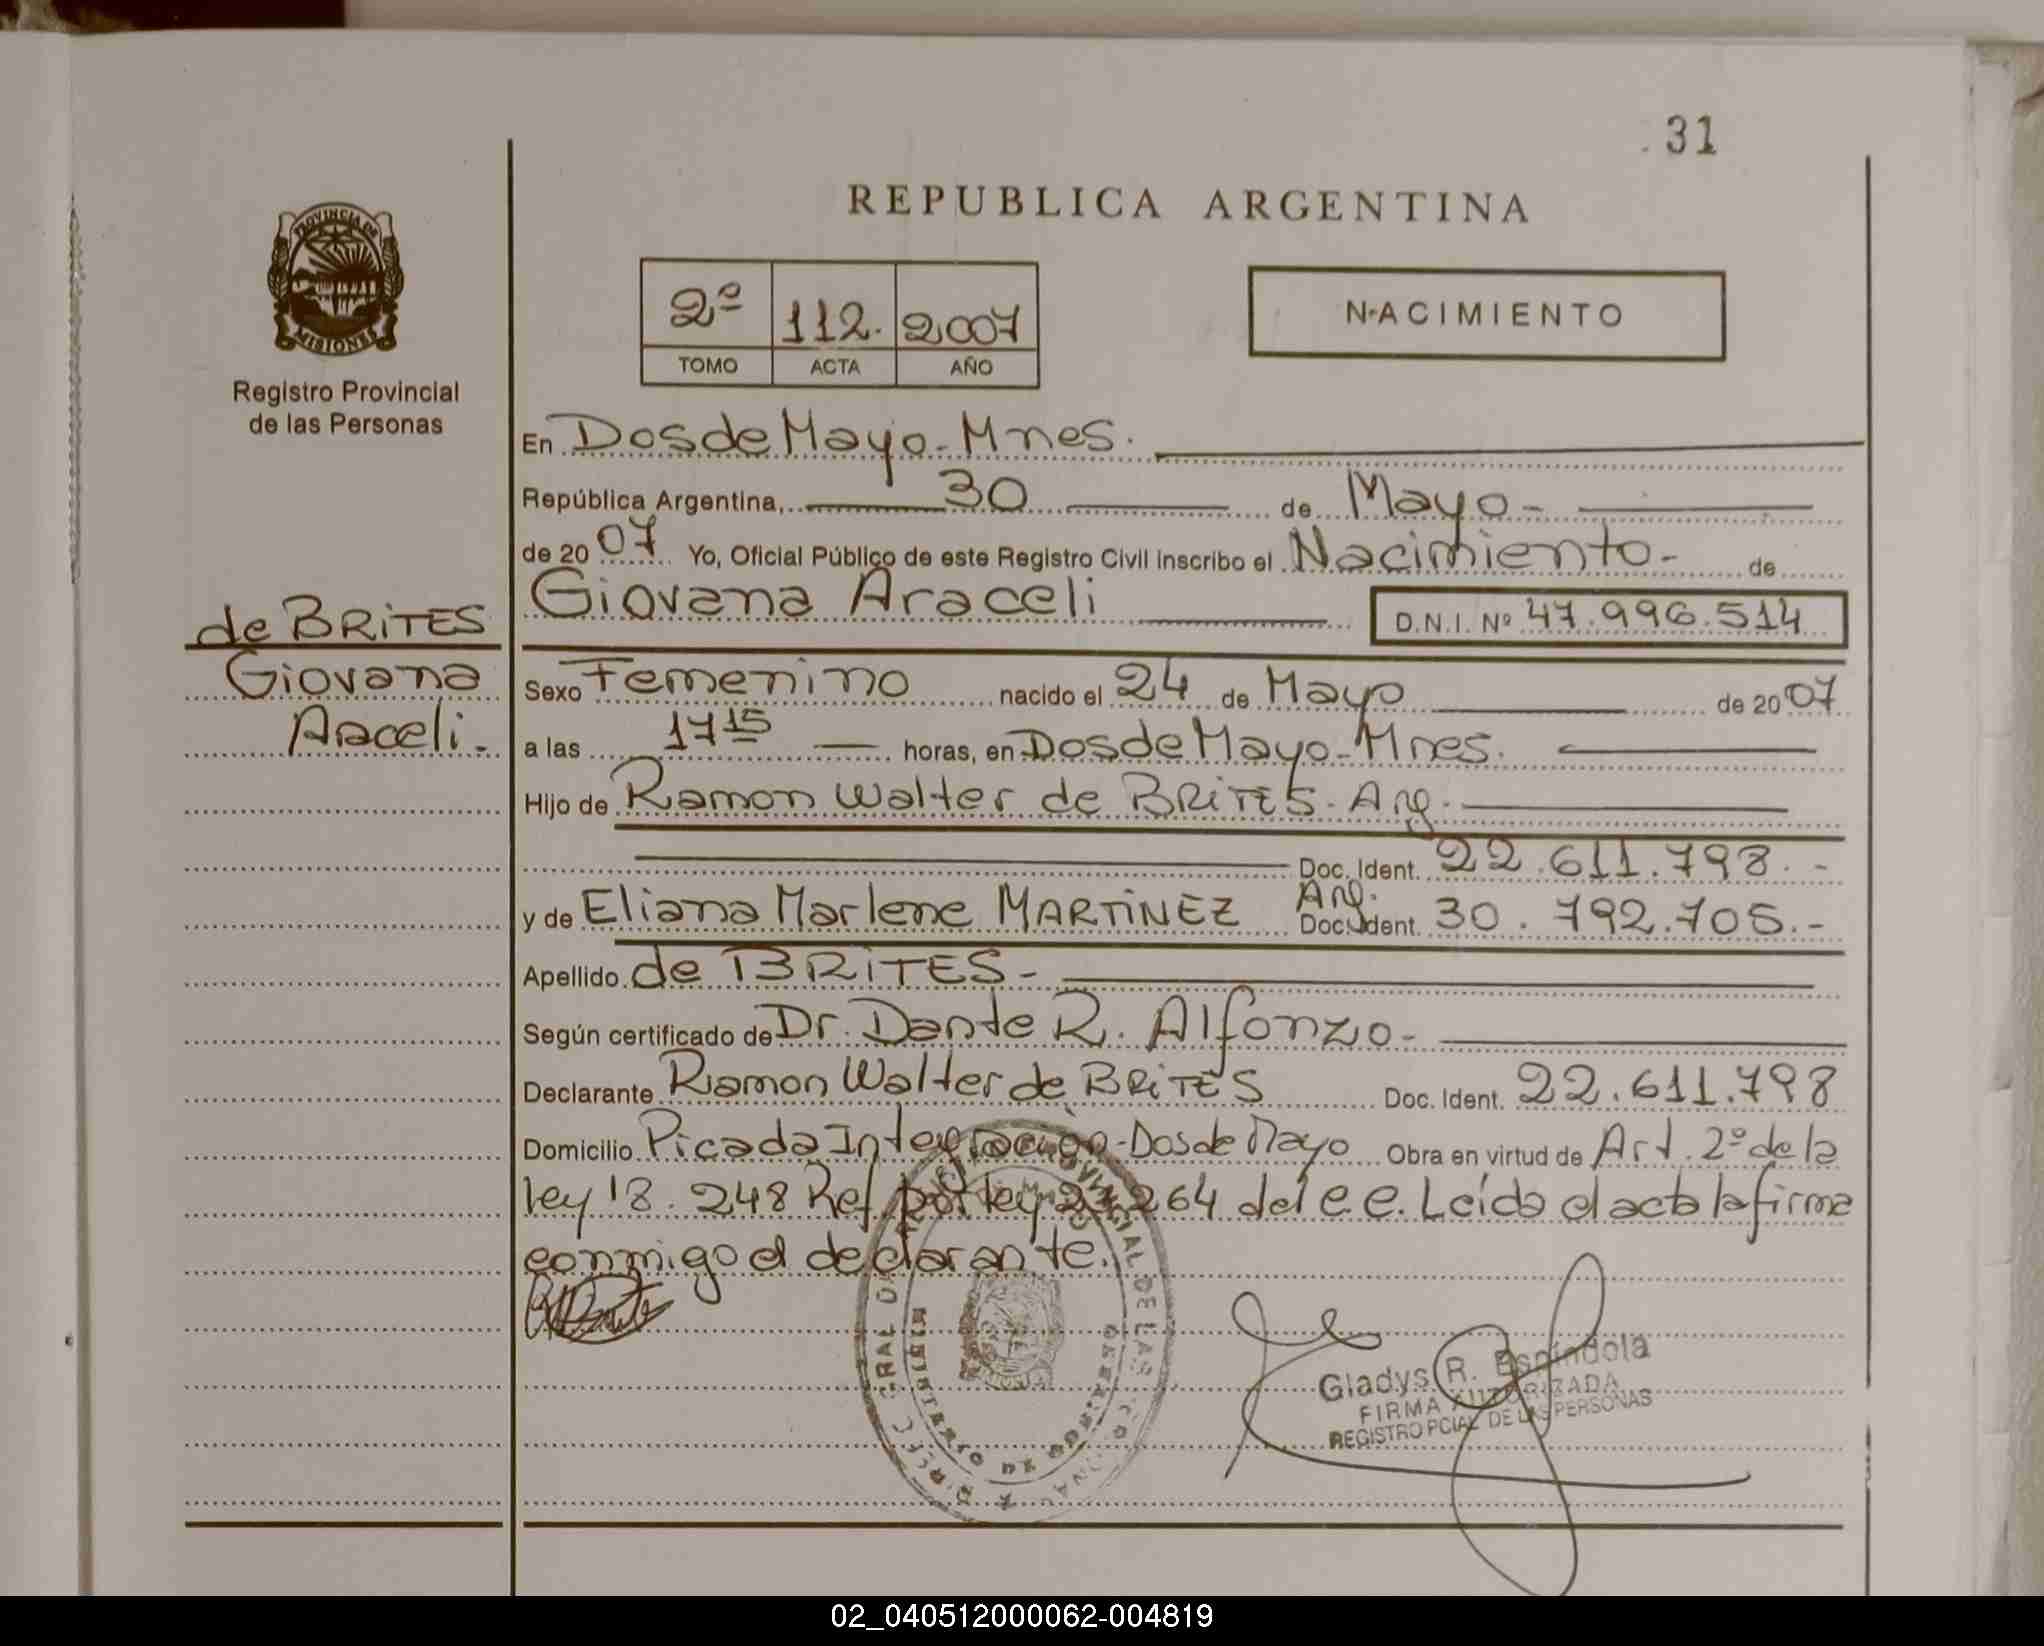 31
REPUBLICA ARGENTINA
PROVINCIA DE
MISIONES
Registro Provincial
de las Personas
2º 112. 2007
TOMO ACTA AÑO
NACIMIENTO
En Dos de Mayo - Mnes.
República Argentina, 30 de Mayo -
de 2007 Yo, Oficial Público de este Registro Civil inscribo el Nacimiento - de
Giovana Araceli D.N.I. Nº 47.996.514
de BRITES
Giovana
Araceli.
Sexo Femenino nacido el 24 de Mayo de 2007
a las 17 15 horas, en Dos de Mayo - Mnes.
Hijo de Ramon Walter de BRITES. Arg.
Doc. Ident. 22.611.798. -
y de Eliana Marlene MARTINEZ Arg. Doc. Ident. 30.792.705. -
Apellido de BRITES -
Según certificado de Dr. Dante R. Alfonzo -
Declarante Ramon Walter de BRITES Doc. Ident. 22.611.798
Domicilio Picada Integración - Dos de Mayo Obra en virtud de Art. 2º de la
ley 18.248 Ref. por ley 23.264 del C.C. Leída el acta la firma
conmigo el declarante.
Gladys R. Espíndola
FIRMA AUTORIZADA
REGISTRO PCIAL DE LAS PERSONAS
02_040512000062-004819